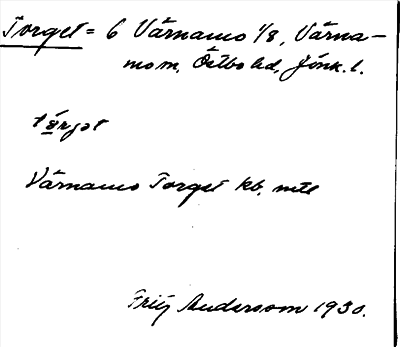 Torget = 6 Värnamo 1/8, Värna-
mo m, Östbo hd, Jönk. l.
tårjət
Värnamo Torget kb. mtl
Fritz Andersson 1930.